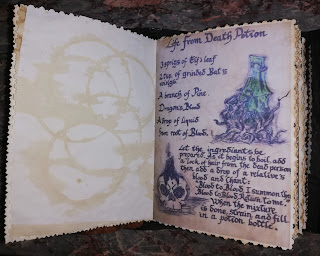 Life from Death Potion
3 sprigs of Elf's leaf
2 tsp. of grinded Bat's
wings
A branch of Pine
Dragon's Blood
A drop of liquid
from root of Blood.
Let the ingredients be
prepared. As it begins to boil, add
a lock of hair from the dead person
then add a drop of a relative's
blood and chant:
"Blood to Blood, I summon thy
Blood to Blood, Return to me."
When the mixture
is done, strain and fill
in a potion bottle.